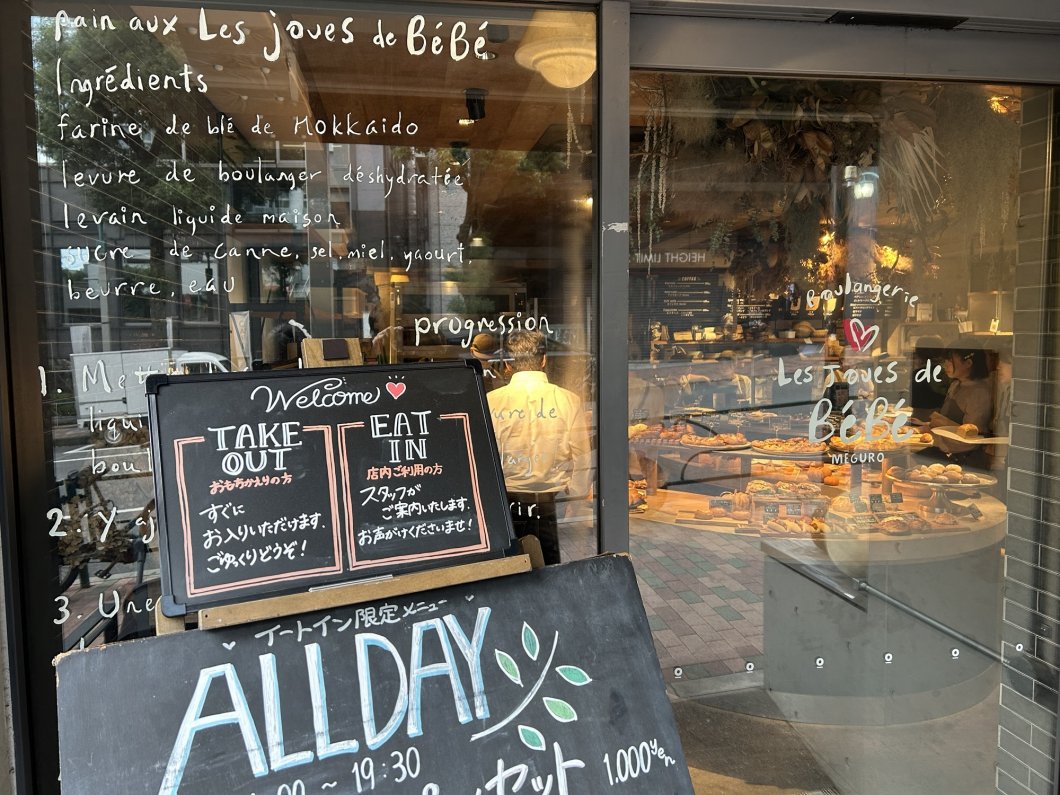 pain aux Les joues de BéBé
Ingrédients
farine de blé de Hokkaido
levure de boulanger déshydratée
levain liquide maison
sucre de canne, sel, miel, yaourt,
beurre, eau
progression
1. Mett
liqui
bou
2. Y aj
3. Une
ure de
rir.
Welcome
TAKE
OUT
おもちかえりの方
すぐに
お入りいただけます。
ごゆっくりどうぞ!
EAT
IN
店内ご利用の方
スタッフが
ご案内いたします。
お声がけくださいませ!
イートイン限定メニュー
ALLDAY
00 ~ 19:30
セット 1.000yen
HEIGHT LIMIT
COFFEE
Boulangerie
Les Joues de
BéBé
MEGURO